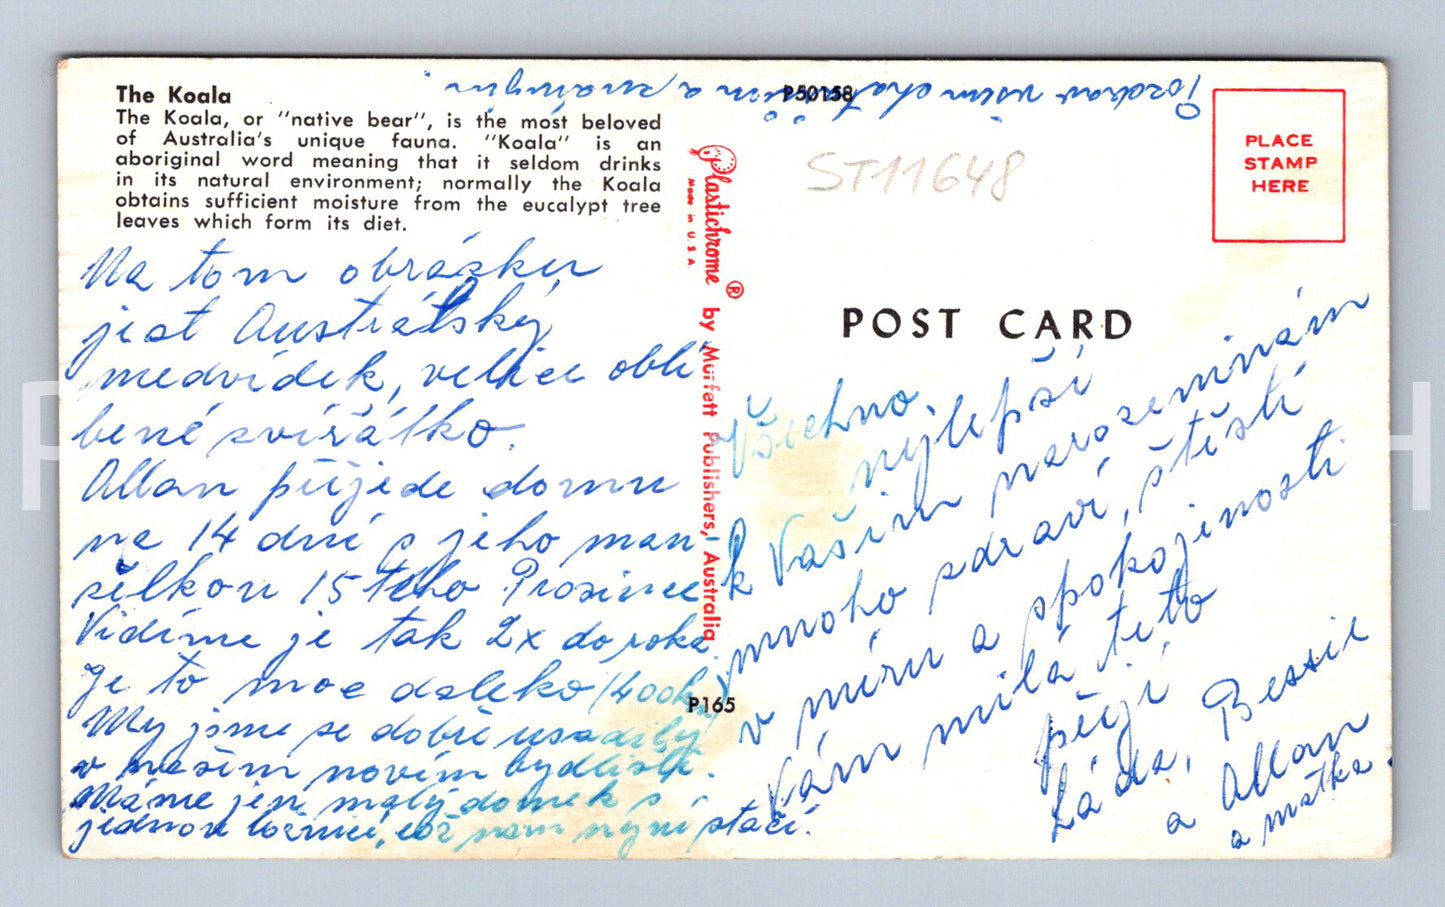 The Koala
The Koala, or "native bear", is the most beloved
of Australia's unique fauna. "Koala" is an
aboriginal word meaning that it seldom drinks
in its natural environment; normally the Koala
obtains sufficient moisture from the eucalypt tree
leaves which form its diet.
Na tom obrázku
jest Australský
medvídek, velice oblí
bené zvířátko.
Allan přijede domu
na 14 dní s jeho man-
želkou 15 teho Prosince
Vidíme je tak 2x do roka.
Je to moc daleko 1400 km
My jsme se dobře usadily
v našem novím bydlisti.
Máme jen malý domek s
jednou ložnicí, což nam nyní stačí.
Plastichrome ® by Murfett Publishers, Australia
Made in U.S.A.
P165
P50158
Pozdrav všem chatařům a známým.
ST11648
PLACE
STAMP
HERE
POST CARD
Všechno.
nejlepší
k Vašim narozeninám
mnoho zdraví, štěstí
v míru a spokojenosti
Vám milá teto
přejí
Láďa, Bessie
a Allan
a matka.